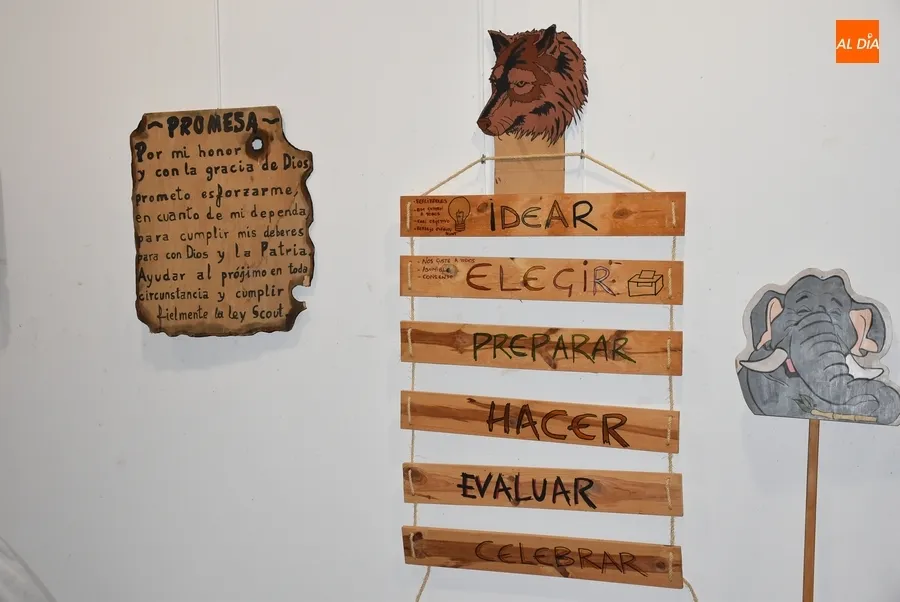 AL DÍA
~ PROMESA ~
Por mi honor
y con la gracia de Dios
prometo esforzarme,
en cuanto de mi dependa
para cumplir mis deberes
para con Dios y la Patria.
Ayudar al prójimo en toda
circunstancia y cumplir
fielmente la Ley Scout.
IDEAR
- NOS GUSTE A TODOS
ELEGIR
PREPARAR
HACER
EVALUAR
CELEBRAR